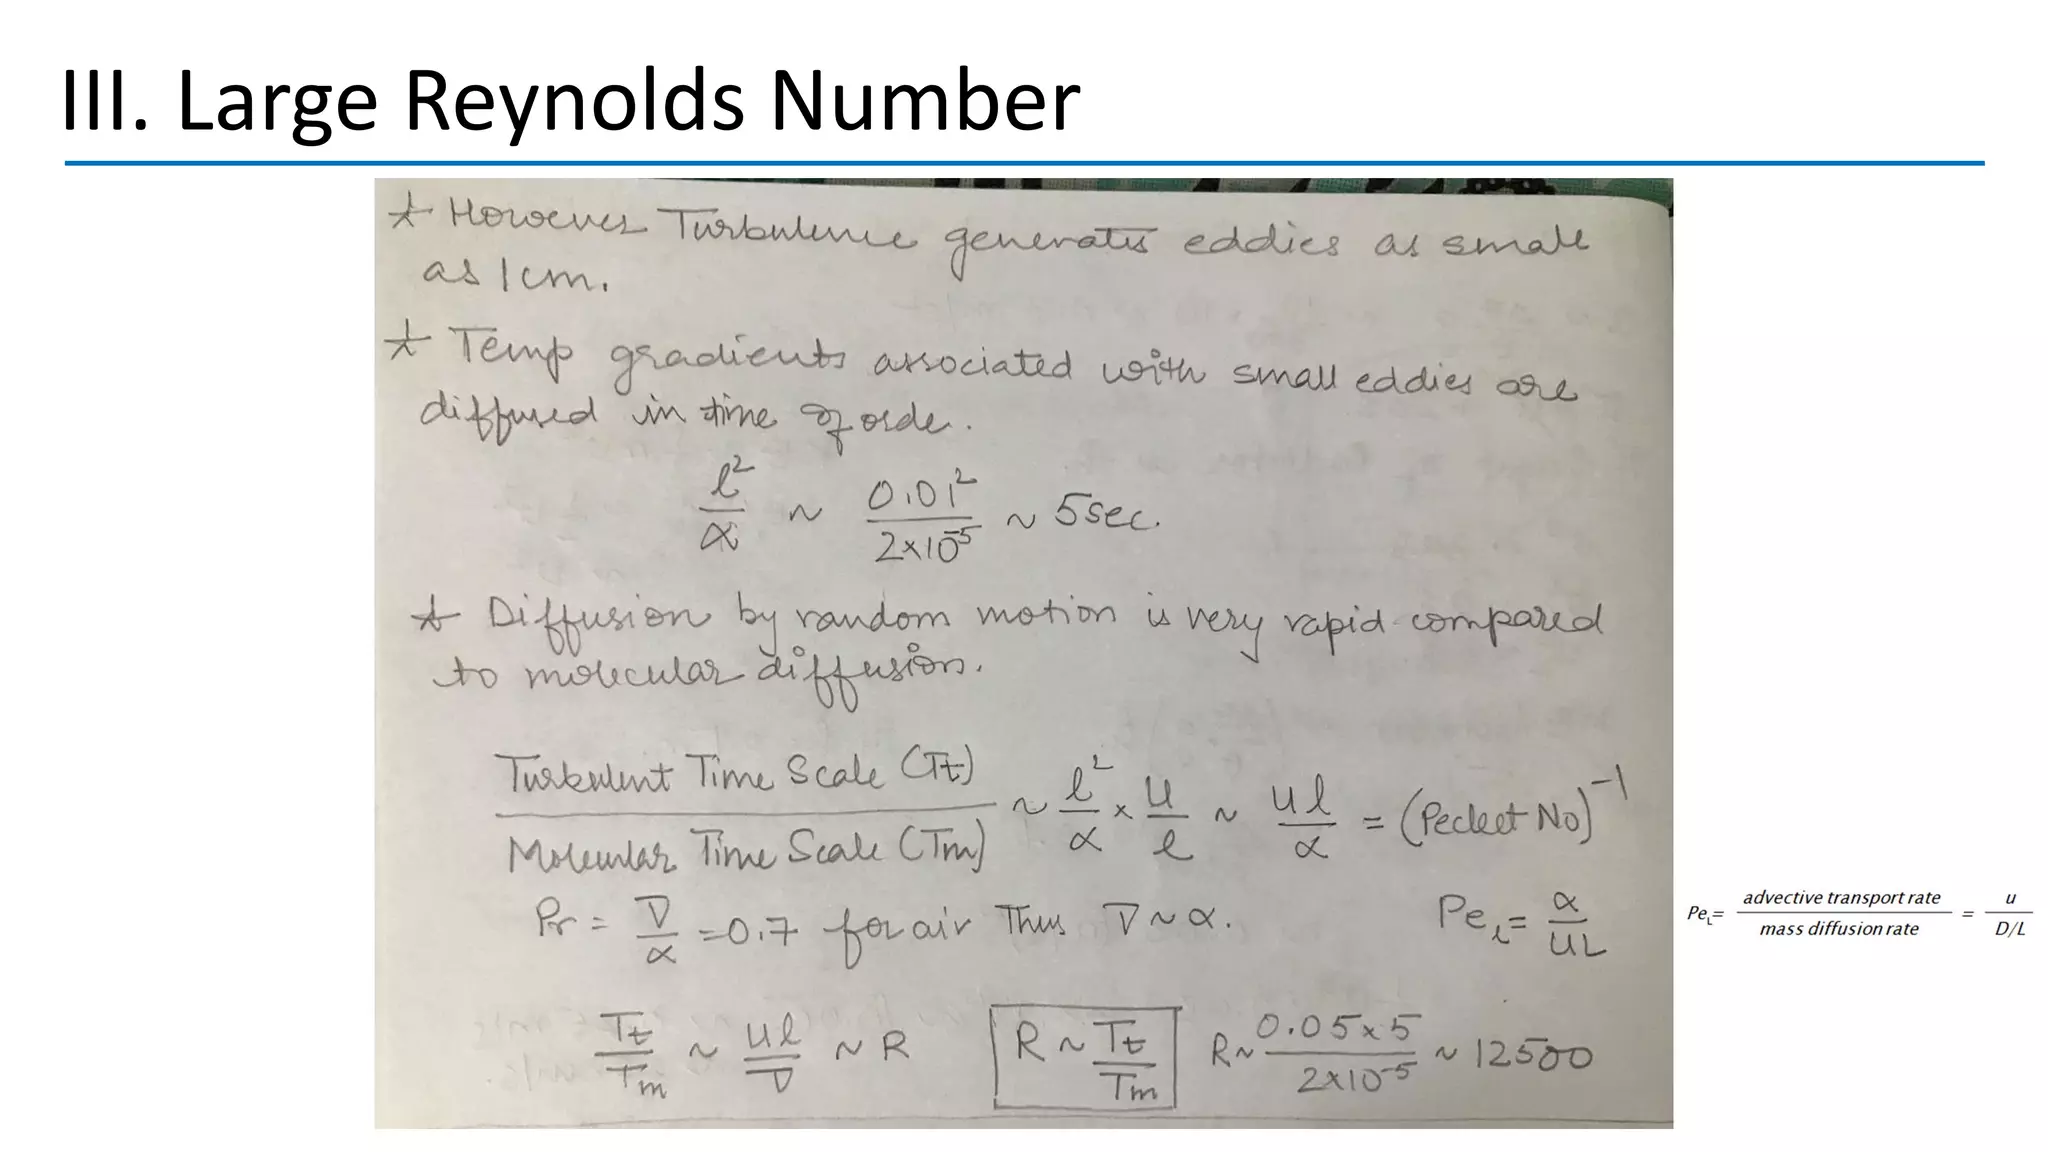 III. Large Reynolds Number
* However Turbulence generates eddies as small
as 1cm.
* Temp gradients associated with small eddies are
diffused in time of orde.
l²/α ~ 0.01²/2×10⁻⁵ ~ 5sec.
* Diffusion by random motion is very rapid compared
to molecular diffusion.
Turbulent Time Scale (Tt)/Molecular Time Scale (Tm) ~ l²/α × u/l ~ ul/α = (Pecleet No)⁻¹
Pr = ν/α = 0.7 for air Thus ν ~ α. Pe_L = α/UL
Pe_L = advective transport rate/mass diffusion rate = u/D/L
Tt/Tm ~ ul/ν ~ R R ~ Tt/Tm R ~ 0.05×5/2×10⁻⁵ ~ 12500